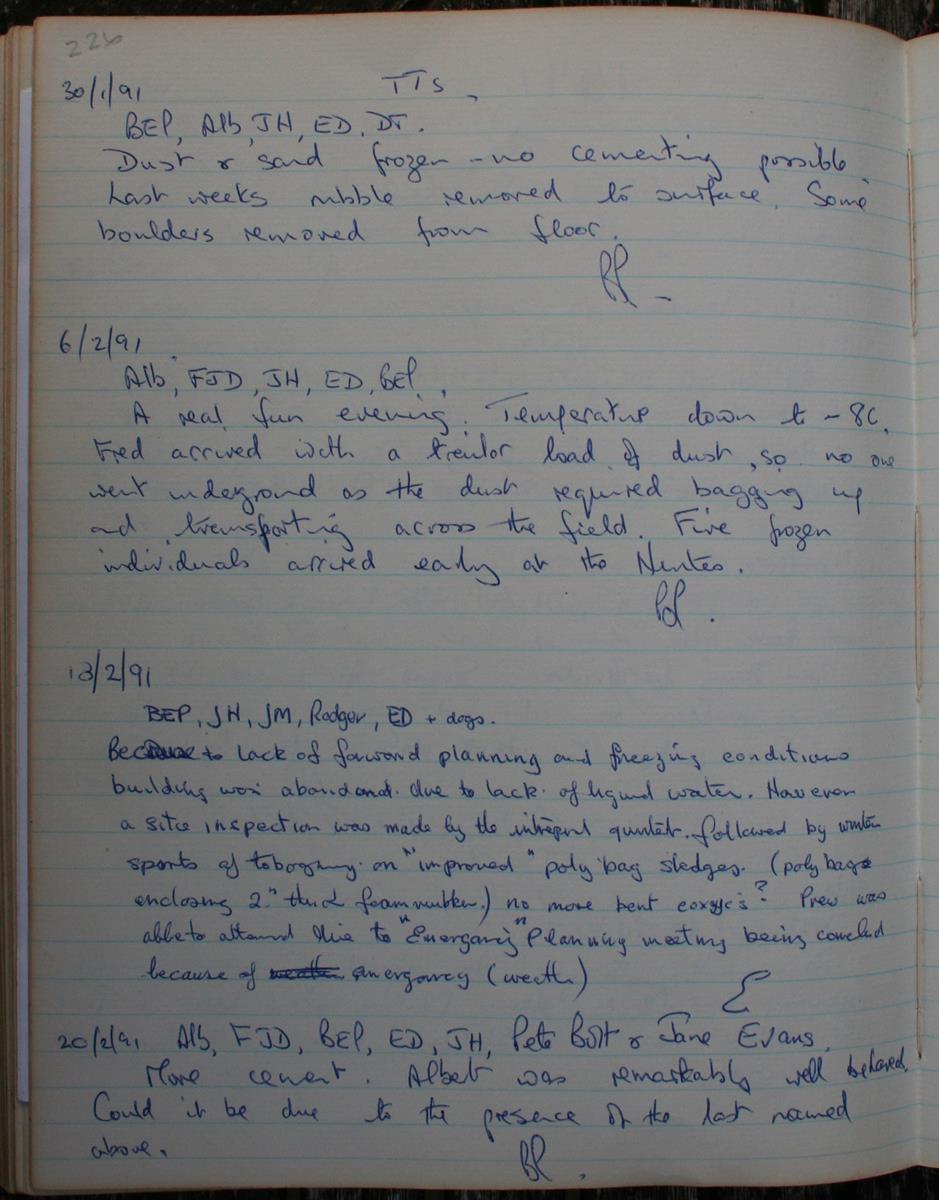 226
30/1/91 TTs.
BEP, Alb, JH, ED, DT.
Dust & sand frozen - no cementing possible.
Last weeks rubble removed to surface. Some
boulders removed from floor.
BP
6/2/91
Alb, FJD, JH, ED, BEP.
A real fun evening. Temperature down to -8C.
Fred arrived with a trailor load of dust, so no one
went undeground as the dust required bagging up
and transporting across the field. Five frozen
individuals arrived early at the Hunters.
BP.
13/2/91
BEP, JH, JM, Rodger, ED + dogs.
to lack of forward planning and freezing conditions
building was abandond. due to lack of liquid water. However
a site inspection was made by the intrepid quintet. followed by winter
sports of toboganing on "improved" poly bag sledges. (poly bags
enclosing 2" thick foam rubber.) no more bent coxyc's? Prew was
able to attend due to "Emergancy" Planning meeting being canceled
because of emergancy (weath)
20/2/91 Alb, FJD, BEP, ED, JH, Pete Bolt & Jane Evans.
More cement. Albert was remarkably well behaved.
Could it be due to the presence of the last named
above.
BP.